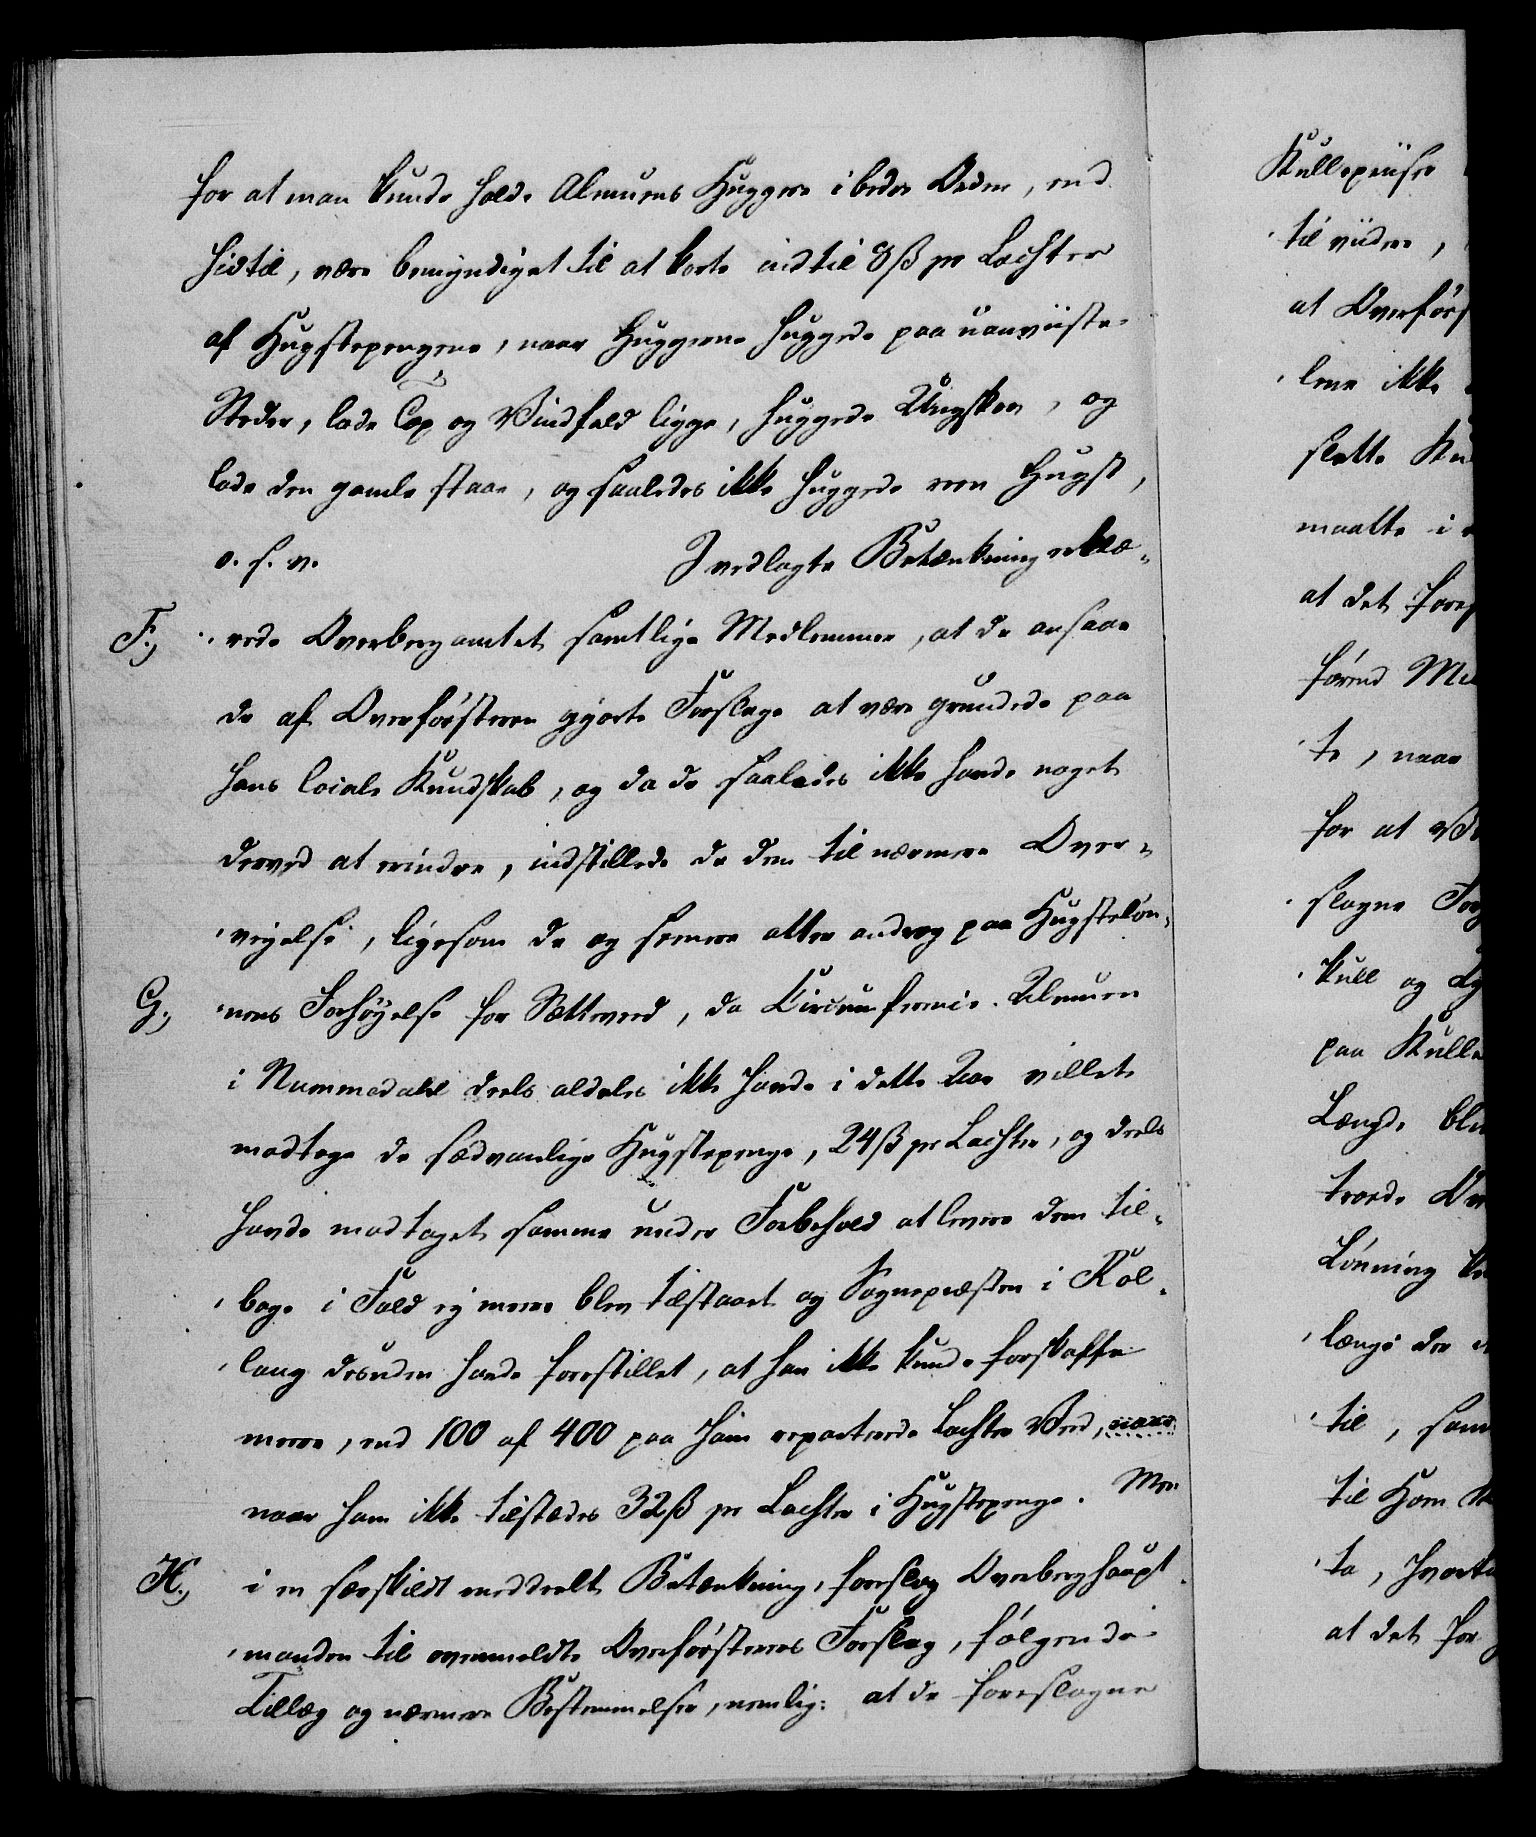 for at man kunde holde Almuens Huggere i bedre Orden, end
hidtil, være bemyndiget til at korte indtil 8 ß pr Lachter
af Hugstepengene, naar Huggerne huggede paa uanviiste
Steder, lode Top og Vindfald ligge, huggede Ungskov, og
lode den gamle staae, og saaledes ikke huggede reen Hugst,
o. s. v. I vedlagte Betænkning erklæ-
F., rede Overbergamtet samtlige Medlemmer, at de ansaae
de af Overførsteren gjorte Forslage at være grundede paa
hans locale Kundskab, og da de saaledes ikke havde noget
derved at erindre, indstillede de dem til nærmere Over-
veyelse, ligesom de og fremme atter androg paa Hugsteløn-
G., nens Forhøyelse for Sætteved, da Circumferenz-Almuen
i Nummedahl deels aldeles ikke havde i dette Aar villet
modtage de sædvanlige Hugstepenge, 24 ß pr Lachter, og deels
havde modtaget samme under Forbehold at levere dem til-
bage i Fald ej meere blev tilstaaet og Sognepræsten i Rol-
laug desuden havde forestillet, at han ikke kunde forskaffe
meere, end 100 af 400 paa ham reparterede Lachter Ved, naar
naar ham ikke tilstædes 32 ß pr Lachter i Hugstepenge. Men
H., i en særskildt meddeelt Betænkning, foreslog Overberghaupt-
manden til ovenmeldte Overførsterens Forslag, følgende
Tillæg og nærmere Bestemmelser, nemlig: at de foreslagne
Kullepriser
til viidere,
at Overførs
lene ikke
slette Ku
maatte i
at det fores
førend Me
te, naar
for at
slagne For
kull og
paa Kulle
Længde ble
troede
Lønning
længe der
til, som
til Kom
te, hvorti
at det for